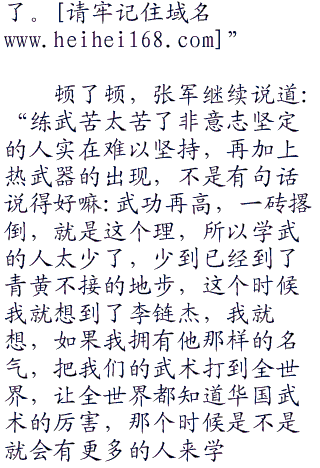 了。[请牢记住域名
www.heihei168.com]”
顿了顿，张军继续说道:
“练武苦太苦了非意志坚定
的人实在难以坚持，再加上
热武器的出现，不是有句话
说得好嘛:武功再高，一砖撂
倒，就是这个理，所以学武
的人太少了，少到已经到了
青黄不接的地步，这个时候
我就想到了李链杰，我就
想，如果我拥有他那样的名
气，把我们的武术打到全世
界，让全世界都知道华国武
术的厉害，那个时候是不是
就会有更多的人来学